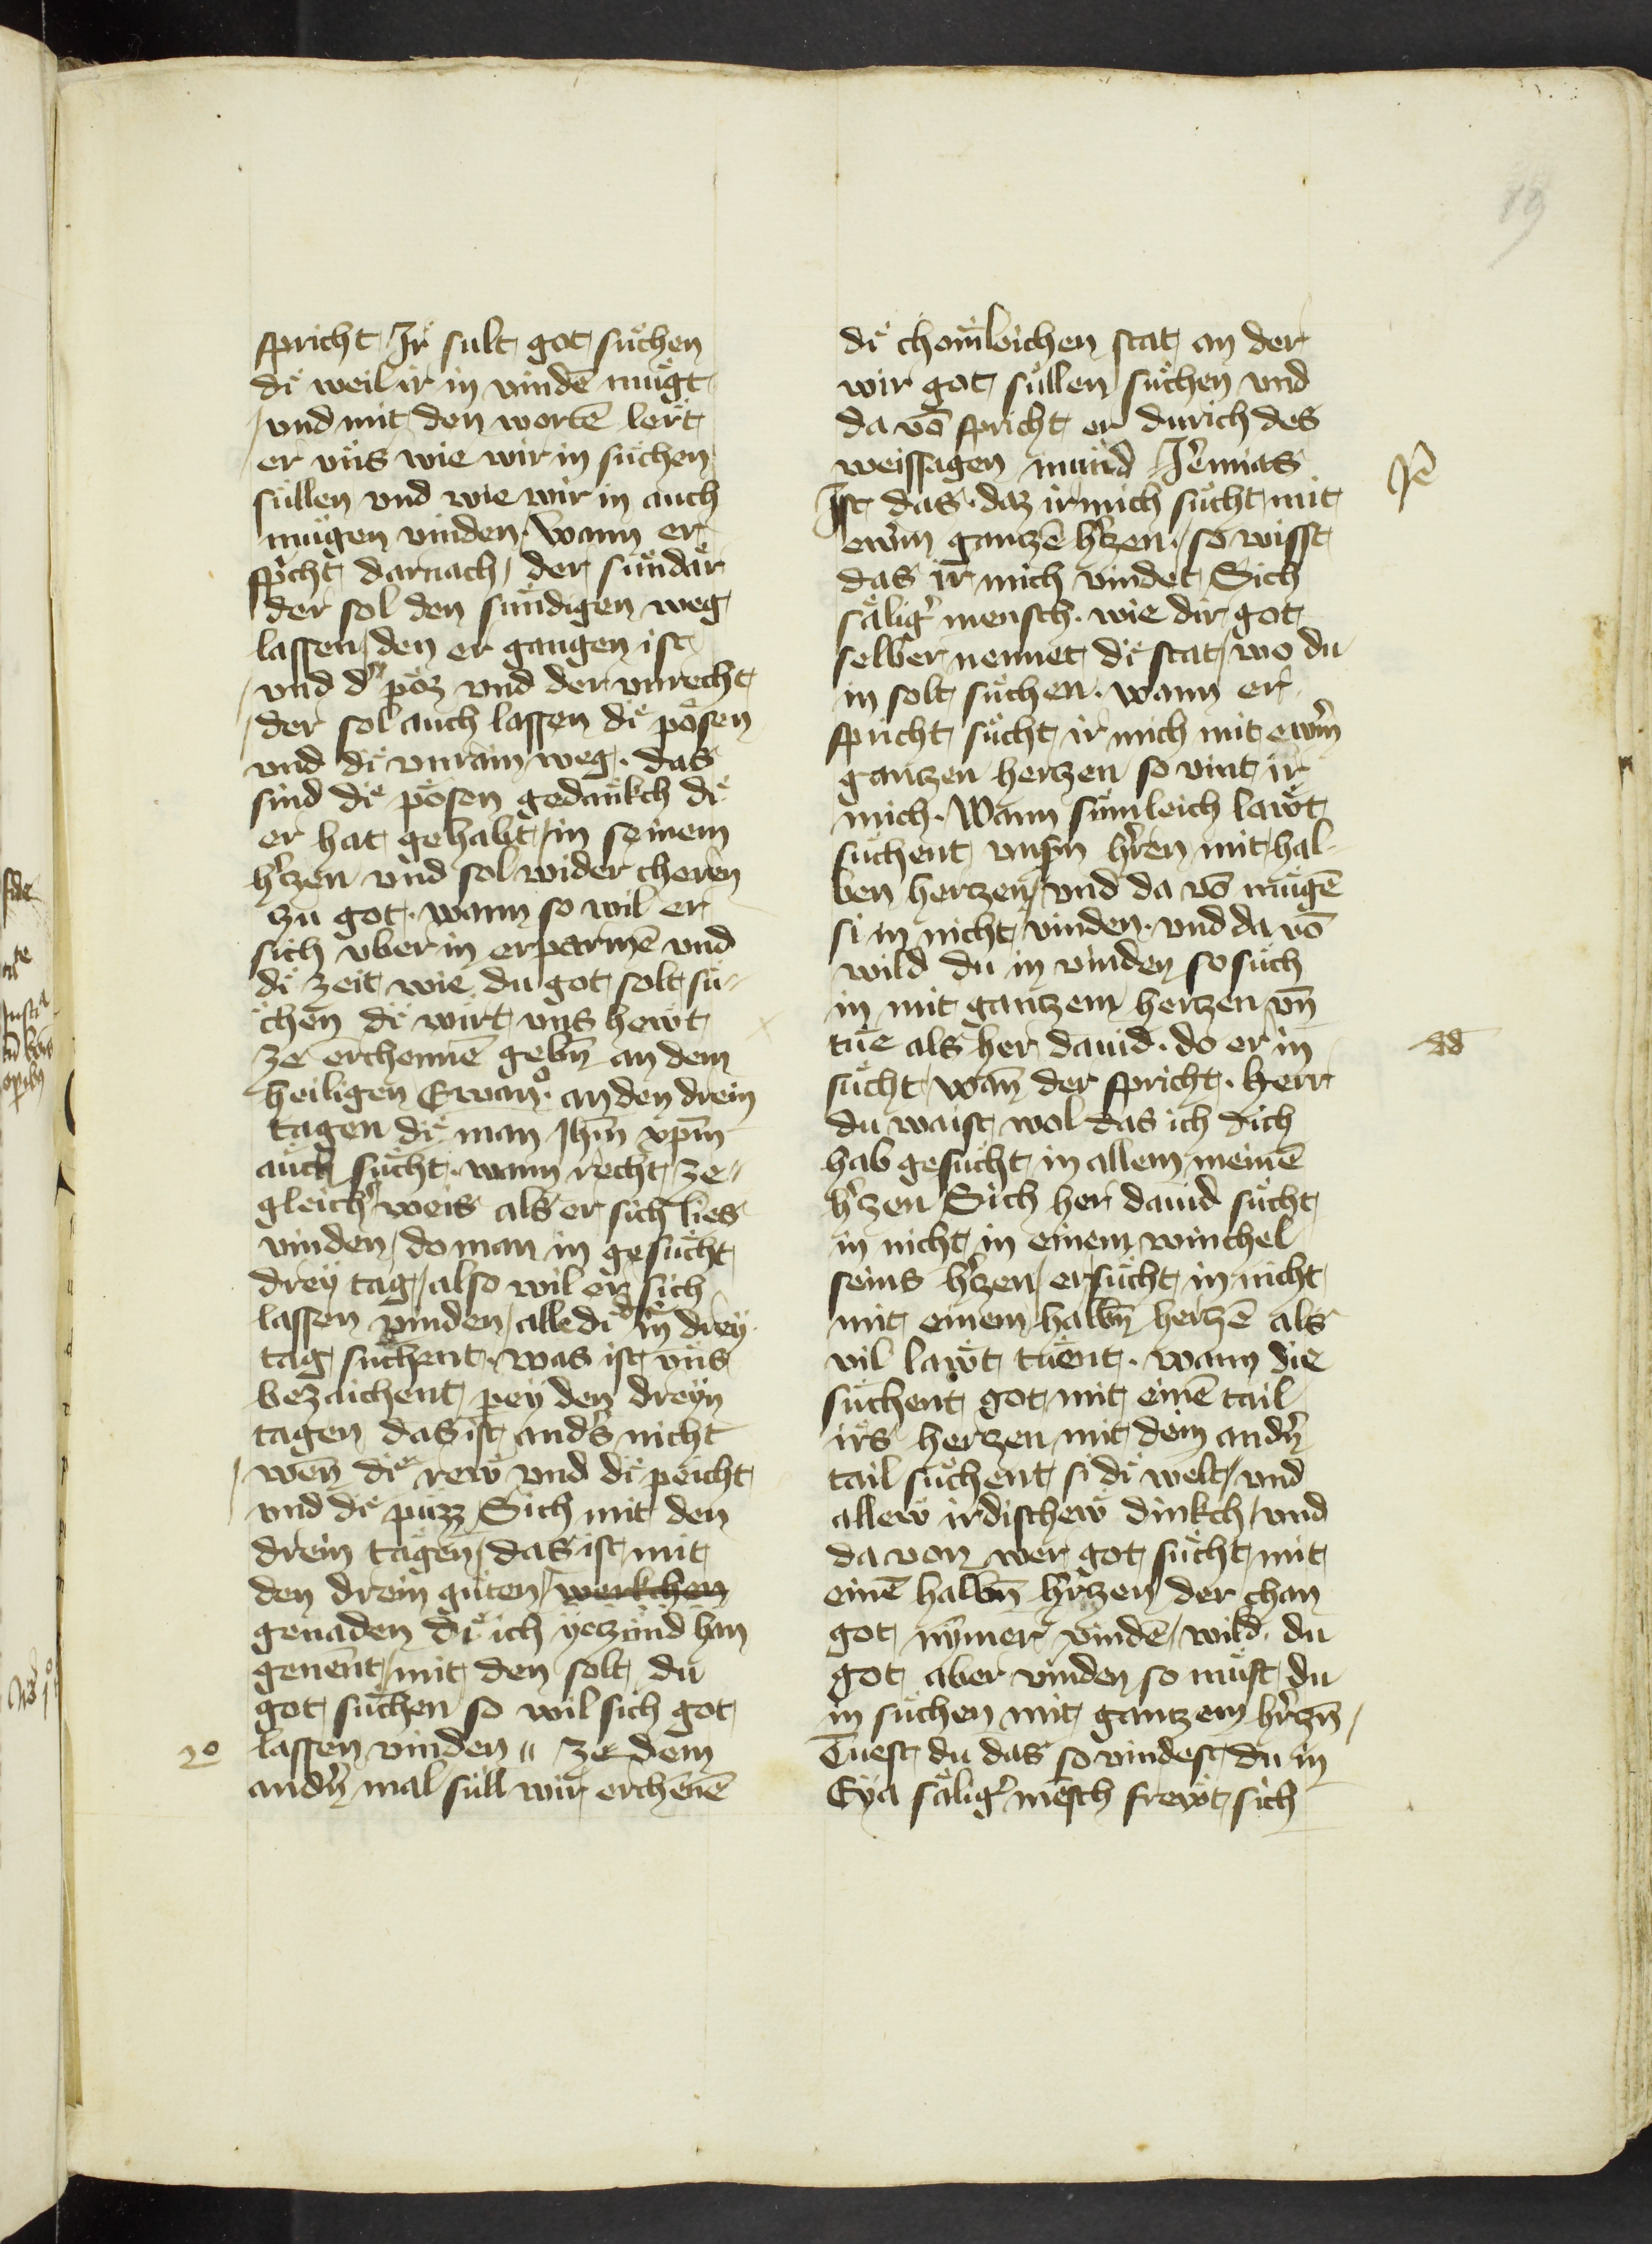 19
spricht Ir sult got suͤchen
di weil ir in vindē mugt
vnd mit den wortē lert
er vns wie wir in suͤchen
sullen vnd wie wir in auch
mugen vinden. Wann er
sp̄cht darnach der sundaͤr
der sol den sundigen weg
lassen den er gangen ist
vnd d' poͤz vnd der vnrecht
der sol auch lassen di poͤsen
vnd di vnrain weg. das
sind die poͤsen gedankch di
er hat gehabt in seinem
h'czen vnd sol wider cheren
zu got. wann so wil er
sich vber in erparmē vnd
di zeit wie du got solt suͤ-
chen di wirt vns hewt
ze erchennē gebn̄ an dem
heiligen Ewanº. an den drein
tagen di man Ihm̄ xp̄m
auch suͤcht. wann recht ze-
gleich' weis als er sich lies
vinden do man in gesuͤcht
drey tag also wil er sich
lassen vinden alle di in drey
tag suͤchent. was ist vns
bezaichent pey den dreyn
tagen das ist and's nicht
wen̄ di rew vnd di peicht
vnd di puͤzz Sich mit den
drein tagen das ist mit
den drein guten werkchen
genaden di ich yeczund han
genent mit den solt du
got suͤchen so wil sich got
lassen vinden " ze dem
2º
and'n mal suͤll wir erchēnē
di chomleichen stat an der
wir got suͤllen suͤchen vnd
da vō spricht er durich des
weissagen mund Ieremias
Je
Ist das. daz ir mich suͤcht mit
ewrm ganczē h'czen. so wisst
das ir mich vindet Sich
saͤlig' mensch. wie dir got
selber nennet di stat wo du
in solt suͤchen. wann er
spricht suͤcht ir mich mit ewrm
ganczen herczen so vint ir
mich. Wann sumleich lawt
suͤchent vnsm h'ren mit hal-
ben herczen vnd da vō mugē
si in nicht vinden. vnd da vō
wild du in vinden so suͤch
in mit ganczem herczen vn̄
tue als her dauid. do er in
dd
suͤcht wan̄ der spricht. herr
du waist wol das ich dich
hab gesuͤcht in allem meinē
h'czen Sich her dauid suͤcht
in nicht in einem winchel
seins h'czen er suͤcht in nicht
mit einem halbn̄ herczē als
vil lawt tuͤent. wann die
suͤchent got mit einē tail
irs herczen mit dem and'n
tail suͤchent si di welt vnd
allew irdischew dinkch vnd
da von wer got suͤcht mit
einē halbn̄ h'rczen der chan
got nymer vindē wild du
got aber vinden so must du
in suͤchen mit ganczem h'rczn̄
Tuest du das so vindest du in
Eya saͤlig' mēsch frewt sich